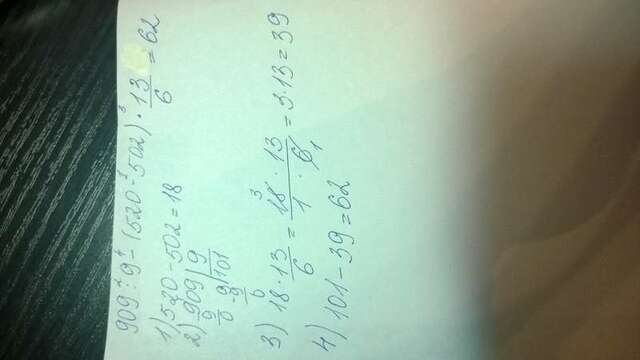 909 : 9 - (520 - 502) · 13/6 = 62
1) 520 - 502 = 18
2) 909 | 9
9 101
0 9
9
0
3) 18 · 13/6 = 18/1 · 13/6 = 3 · 13 = 39
4) 101 - 39 = 62